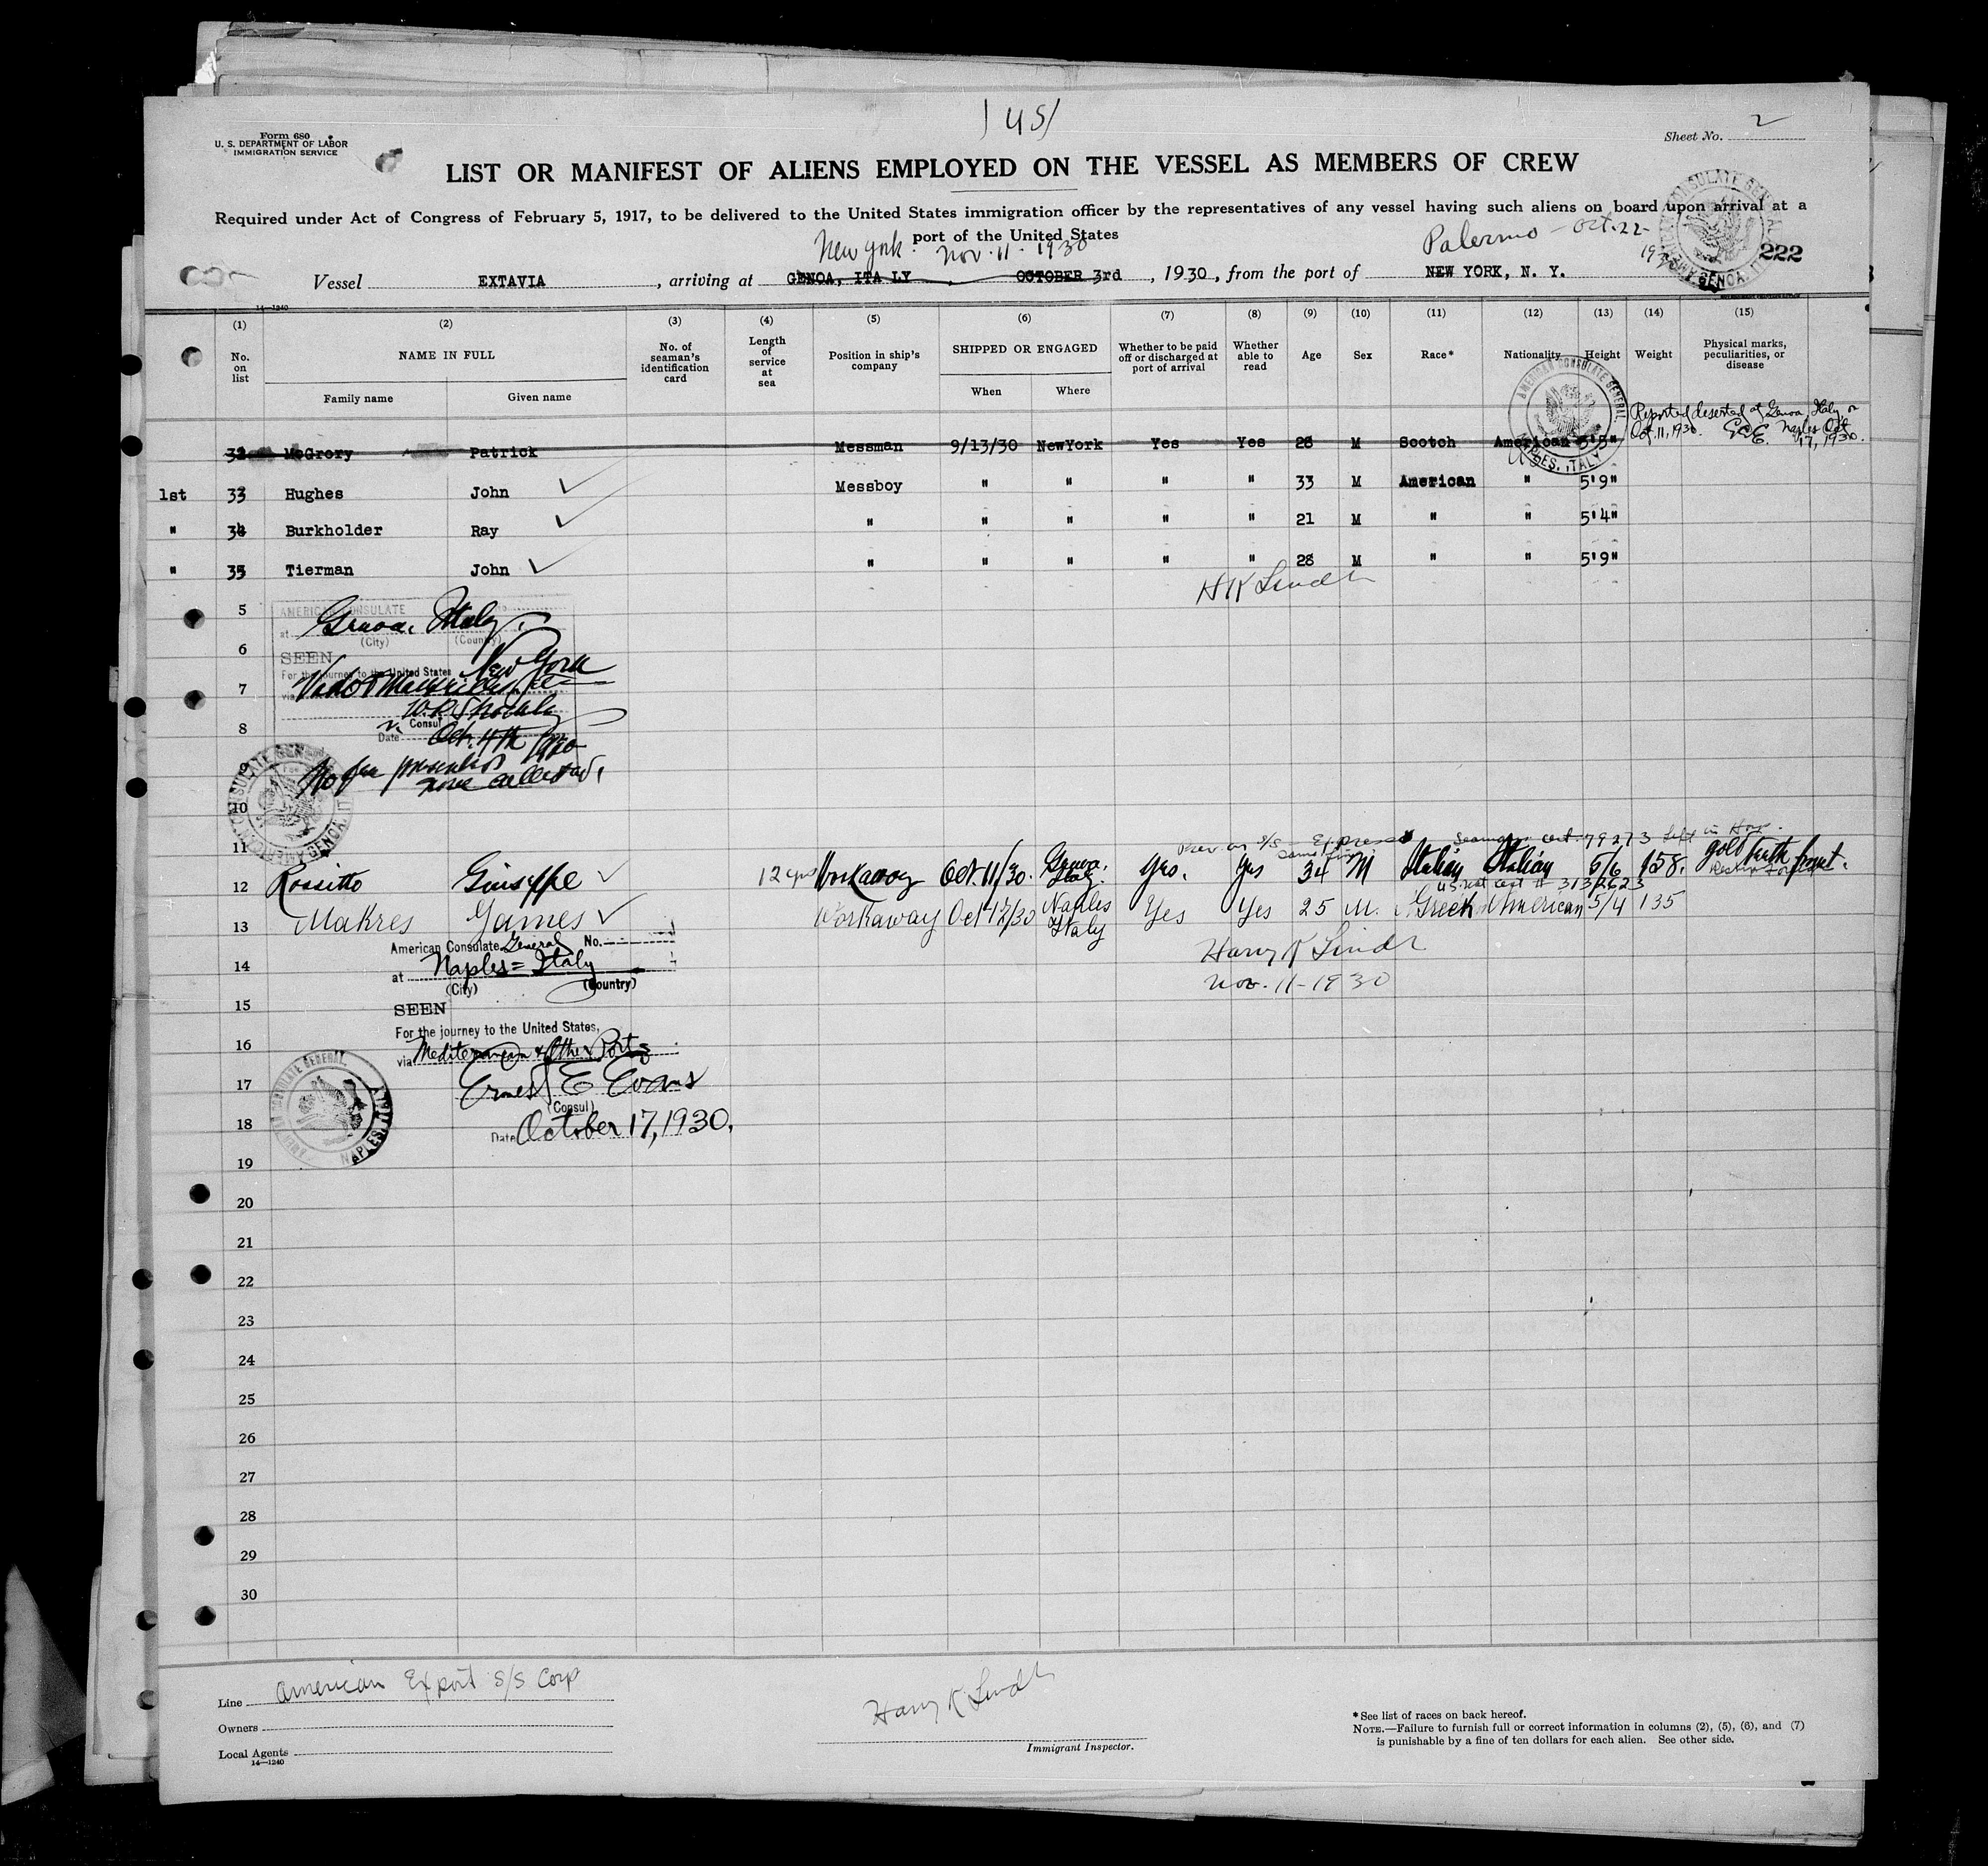 1 US/
Form 680
U. S. DEPARTMENT OF LABOR
IMMIGRATION SERVICE
Sheet No. 2
LIST OR MANIFEST OF ALIENS EMPLOYED ON THE VESSEL AS MEMBERS OF CREW
Required under Act of Congress of February 5, 1917, to be delivered to the United States immigration officer by the representatives of any vessel having such aliens on board upon arrival at a
port of the United States
New York. Nov. 11. 1930 Palermo - Oct. 22-
222
Vessel EXTAVIA, arriving at GENOA, ITA LY, OCTOBER 3rd, 1930, from the port of NEW YORK, N. Y.
14-1240
(1) (2) (3) (4) (5) (6) (7) (8) (9) (10) (11) (12) (13) (14) (15)
No. on list NAME IN FULL No. of seaman's identification card Length of service at sea Position in ship's company SHIPPED OR ENGAGED Whether to be paid off or discharged at port of arrival Whether able to read Age Sex Race* Nationality Height Weight Physical marks, peculiarities, or disease
Family name Given name When Where
Reported deserted at Genoa, Italy on
Oct. 11, 1930. EEE. Naples Oct 17, 1930.
32 McGrory Patrick Messman 9/13/30 NewYork Yes Yes 28 M Scotch American 5'5"
1st 33 Hughes John ✓ Messboy " " " " 33 M American " 5'9"
" 34 Burkholder Ray ✓ " " " " " 21 M " " 5'4"
" 35 Tierman John ✓ " " " " " 28 M " " 5'9"
H K Lindh
5
AMERICAN CONSULATE
at Genoa, Italy.
(City) (Country)
6
SEEN
For the journey to the United States New York
7
via
8
Consul
Date Oct. 4th 1930
9
No fee
none collected.
AMERICAN CONSULATE GENERAL GENOA, IT
10
11
Seaman cert. 79273 left in Hosp.
12 Rossitto Giuseppe ✓ 12 yrs Workaway Oct. 11/30. Genoa. Italy. Yes. Yes 34 M Italian Italian 5/6 158. gold teeth front.
U.S. nat cert # 3132623
13 Makres James ✓ Workaway Oct 12/30 Naples Italy Yes Yes 25 M. Greek American 5/4 135
American Consulate General No.
Harry K Lindh
14
at Naples = Italy
(City) (Country)
Nov. 11-1930
15
SEEN
For the journey to the United States,
16
via Mediterranean & Other Ports
17
Ernest E Evans
(Consul)
18
Date October 17, 1930.
AMERICAN CONSULATE GENERAL NAPLES, ITALY
19
20
21
22
23
24
25
26
27
28
29
30
Line American Export S/S Corp
Owners
Local Agents
14-1240
Harry K Lindh
Immigrant Inspector.
* See list of races on back hereof.
NOTE.—Failure to furnish full or correct information in columns (2), (5), (6), and (7)
is punishable by a fine of ten dollars for each alien. See other side.